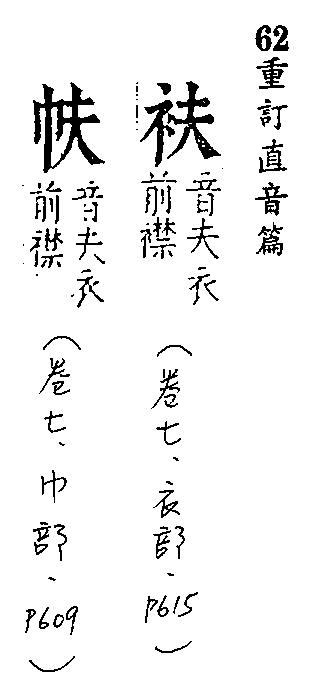 62重訂直音篇
衭
音夫衣
前襟
（卷七、衣部、P615）
帗
音夫衣
前襟
（卷七、巾部、P609）